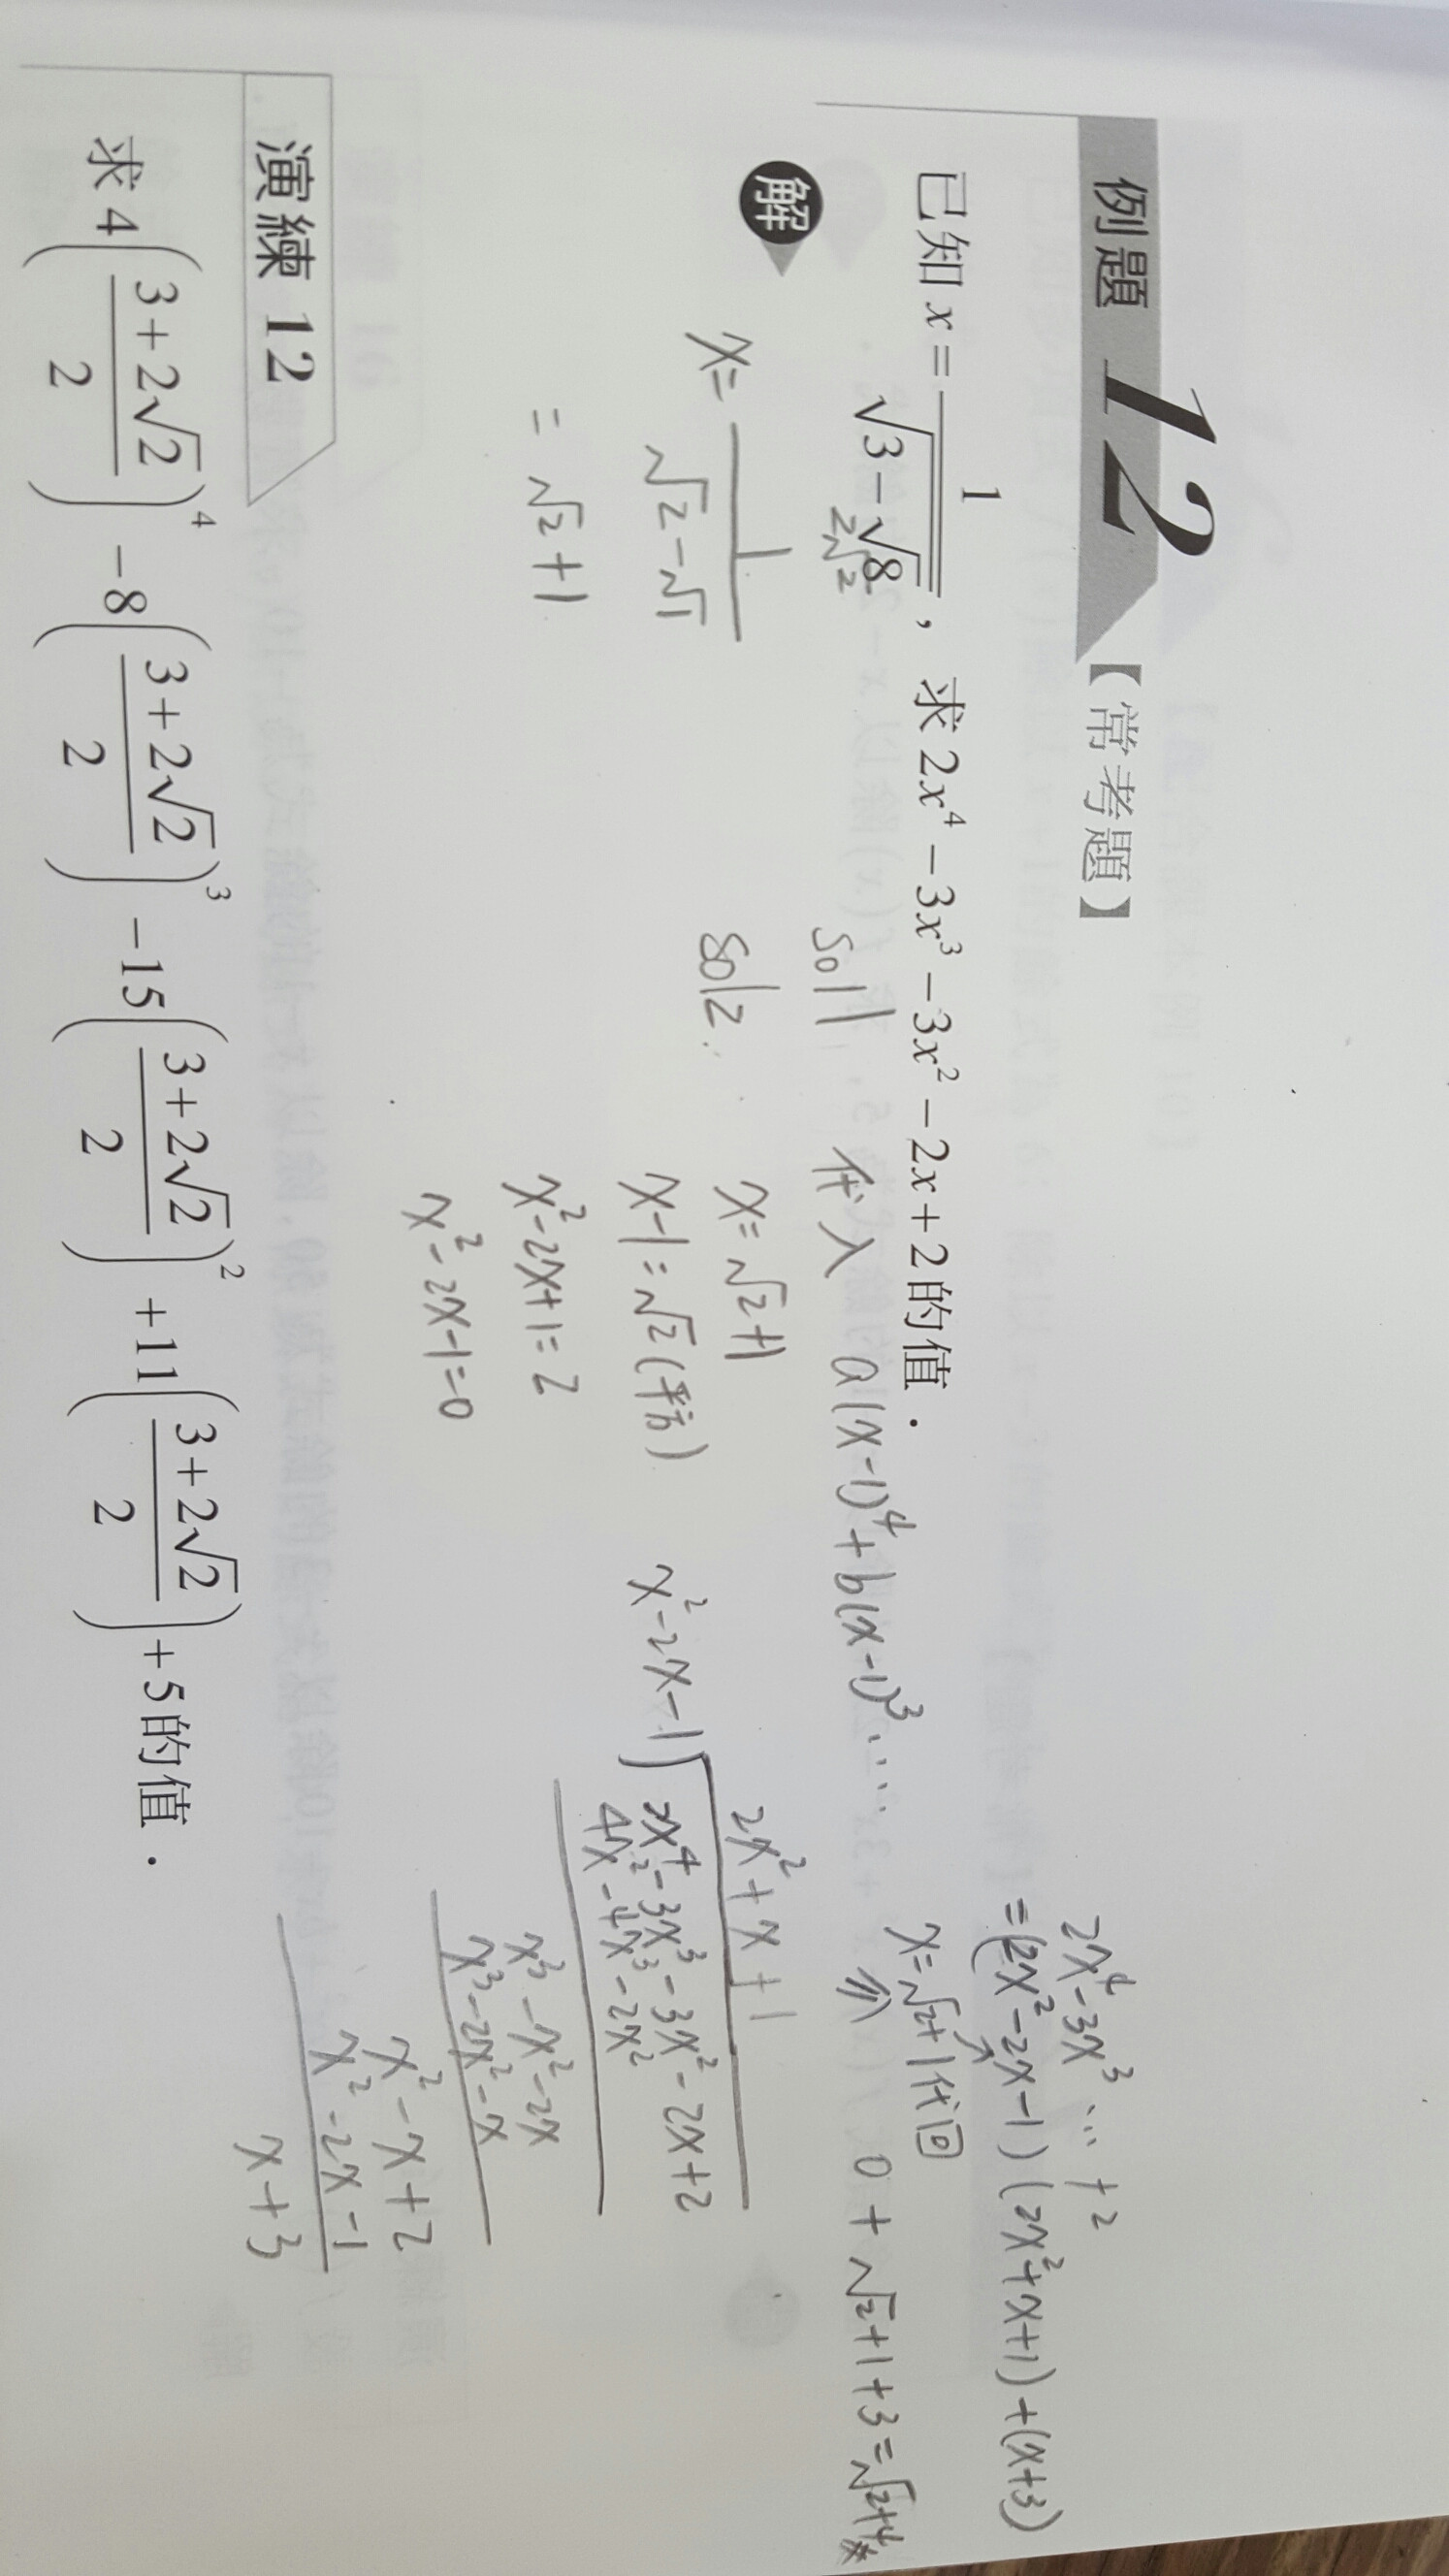 例題 12 【常考題】
已知 x = 1/√(3−√8) , 求 2x⁴ − 3x³ − 3x² − 2x + 2 的值.
2√2
解
x = 1/(√2 − √1)
= √2 + 1
sol1 代入 a(x−1)⁴ + b(x−1)³ ...
sol2.
x = √2+1
x−1 = √2 (平方)
x² − 2x + 1 = 2
x² − 2x − 1 = 0
2x² + x + 1
x² − 2x − 1 ) 2x⁴ − 3x³ − 3x² − 2x + 2
4x² − 4x³ − 2x²
x³ − x² − 2x
x³ − 2x² − x
x² − x + 2
x² − 2x − 1
x + 3
2x⁴ − 3x³ ... + 2
= (2x² − 2x − 1)(2x² + x + 1) + (x+3)
x = √2+1 代回
⇒ 0 + √2 + 1 + 3 = √2+4
演練 12
求 4((3+2√2)/2)⁴ − 8((3+2√2)/2)³ − 15((3+2√2)/2)² + 11((3+2√2)/2) + 5 的值.